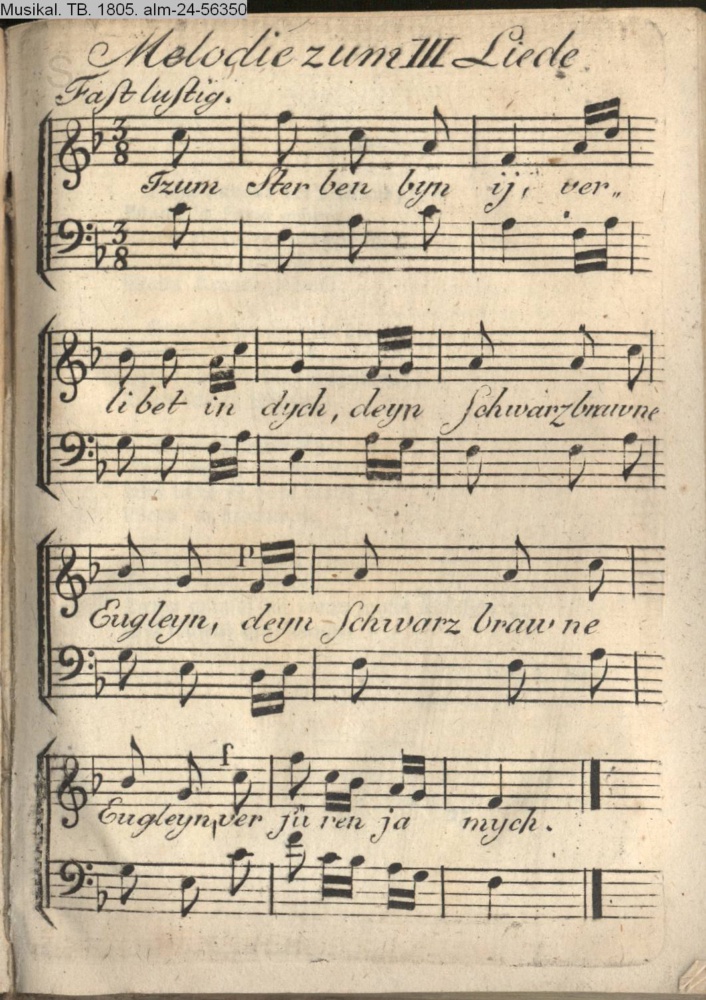 Musikal. TB. 1805. alm-24-56350
Melodie zum III Liede
Fast lustig.
Tzum Ster ben byn ij, ver„
li bet in dych, deyn Schwarzbrawne
P
Eugleyn, deyn Schwarz braw ne
f
Eugleyn, ver fü ren ja mych.